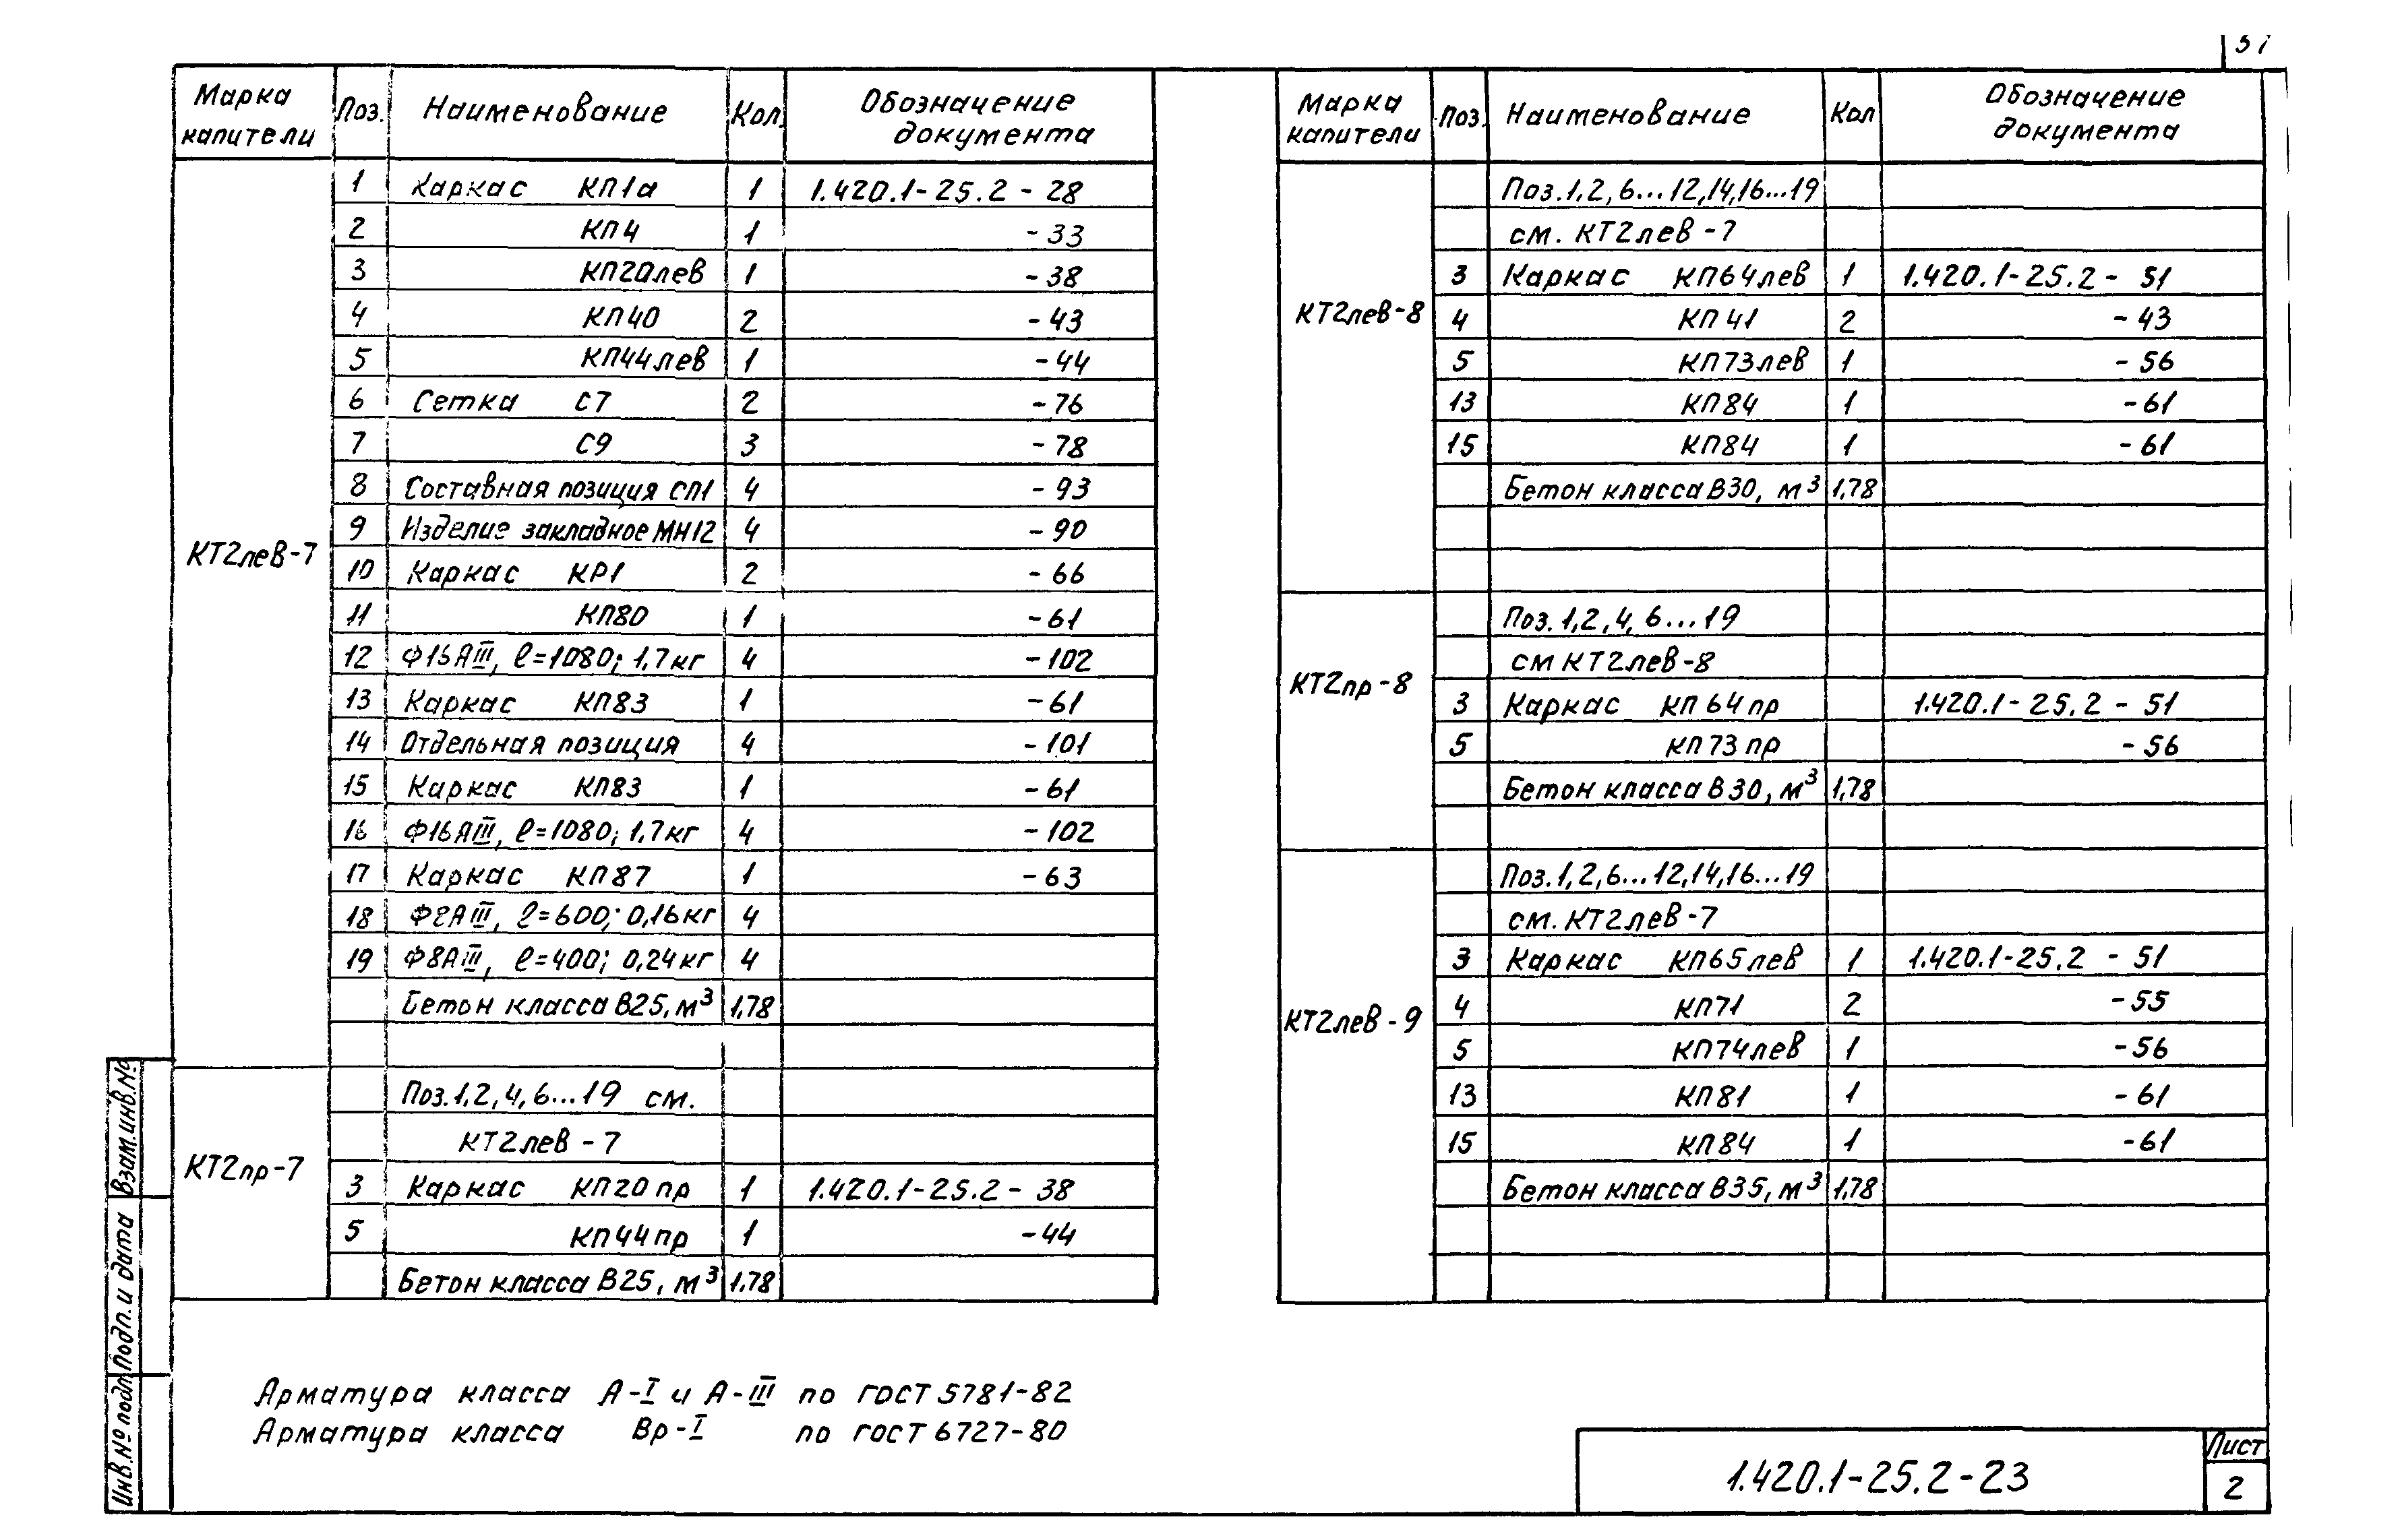 37
Марка капители Поз. Наименование Кол. Обозначение документа
КТ2лев-7
1 Каркас КП1а 1 1.420.1-25.2-28
2 КП4 1 -33
3 КП20лев 1 -38
4 КП40 2 -43
5 КП44лев 1 -44
6 Сетка С7 2 -76
7 С9 3 -78
8 Составная позиция СП1 4 -93
9 Изделие закладное МН12 4 -90
10 Каркас КР1 2 -66
11 КП80 1 -61
12 Ф16АIII, ℓ=1080; 1,7кг 4 -102
13 Каркас КП83 1 -61
14 Отдельная позиция 4 -101
15 Каркас КП83 1 -61
16 Ф16АIII, ℓ=1080; 1,7кг 4 -102
17 Каркас КП87 1 -63
18 ℓ=600; 0,16кг 4
19 Ф8АIII, ℓ=400; 0,24кг 4
Бетон класса В25, м³ 1,78
КТ2пр-7
Поз.1,2,4,6...19 см.
КТ2лев-7
3 Каркас КП20пр 1 1.420.1-25.2-38
5 КП44пр 1 -44
Бетон класса В25, м³ 1,78
Марка капители Поз. Наименование Кол Обозначение документа
КТ2лев-8
Поз.1,2,6...12,14,16...19
см. КТ2лев-7
3 Каркас КП64лев 1 1.420.1-25.2-51
4 КП41 2 -43
5 КП73лев 1 -56
13 КП84 1 -61
15 КП84 1 -61
Бетон класса В30, м³ 1,78
КТ2пр-8
Поз.1,2,4,6...19
см КТ2лев-8
3 Каркас КП64пр 1.420.1-25.2-51
5 КП73пр -56
Бетон класса В30, м³ 1,78
КТ2лев-9
Поз.1,2,6...12,14,16...19
см. КТ2лев-7
3 Каркас КП65лев 1 1.420.1-25.2-51
4 КП71 2 -55
5 КП74лев 1 -56
13 КП81 1 -61
15 КП84 1 -61
Бетон класса В35, м³ 1,78
Арматура класса А-I и А-III по ГОСТ 5781-82
Арматура класса Вр-I по ГОСТ 6727-80
Инв.№ подл. Подп. и дата Взам.инв.№
1.420.1-25.2-23
Лист
2